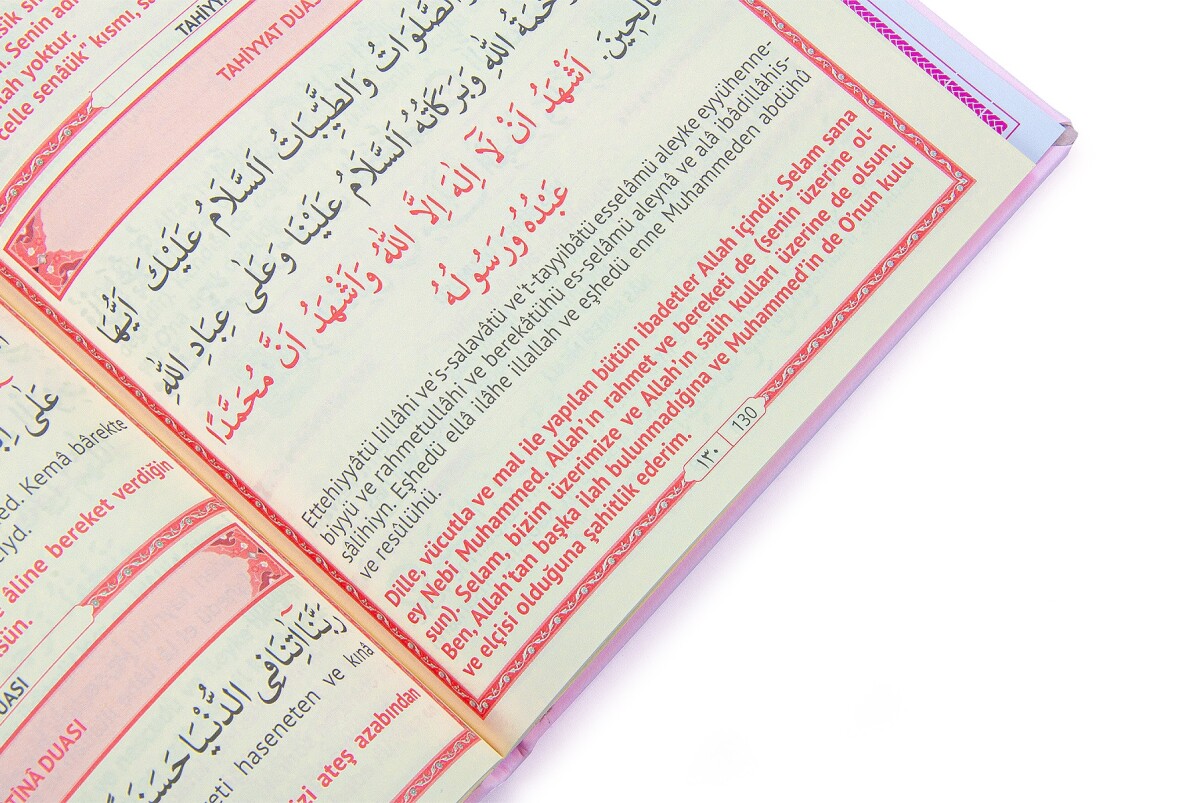 sik
Senin
lah yoktur.
celle senâük" kısmı,
TAHİYYAT DUA
وَالصَّلَوَاتُ وَالطَّيِّبَاتُ اَلسَّلَامُ عَلَيْكَ اَيُّهَا
اللّٰهِ وَبَرَكَاتُهُ اَلسَّلَامُ عَلَيْنَا وَعَلٰى عِبَادِ اللّٰهِ
اَشْهَدُ اَنْ لَا اِلٰهَ اِلَّا اللّٰهُ وَاَشْهَدُ اَنَّ مُحَمَّدًا
عَبْدُهُ وَرَسُولُهُ
Ettehiyyatü lillâhi ve's-salavâtü ve't-tayyibâtü esselâmü aleyke eyyühenne-
biyyü ve rahmetullâhi ve berekâtühü es-selâmü aleynâ ve alâ ibâdillâhis-
sâlihiyn. Eşhedü ellâ ilâhe illallah ve eşhedü enne Muhammeden abdühû
ve resûlühü.
Dille, vücutla ve mal ile yapılan bütün ibadetler Allah içindir. Selam sana
ey Nebi Muhammed. Allah'ın rahmet ve bereketi de (senin üzerine ol-
sun). Selam, bizim üzerimize ve Allah'ın salih kulları üzerine de olsun.
Ben, Allah'tan başka ilah bulunmadığına ve Muhammed'in de O'nun kulu
ve elçisi olduğuna şahitlik ederim.
١٣٠ 130
عَلٰى
ed. Kemâ bârekte
âline bereket verdiğin
UASI
TİNÂ DUASI
رَبَّنَا اٰتِنَا فِي الدُّنْيَا
eti haseneten ve kınâ
izi ateş azabından